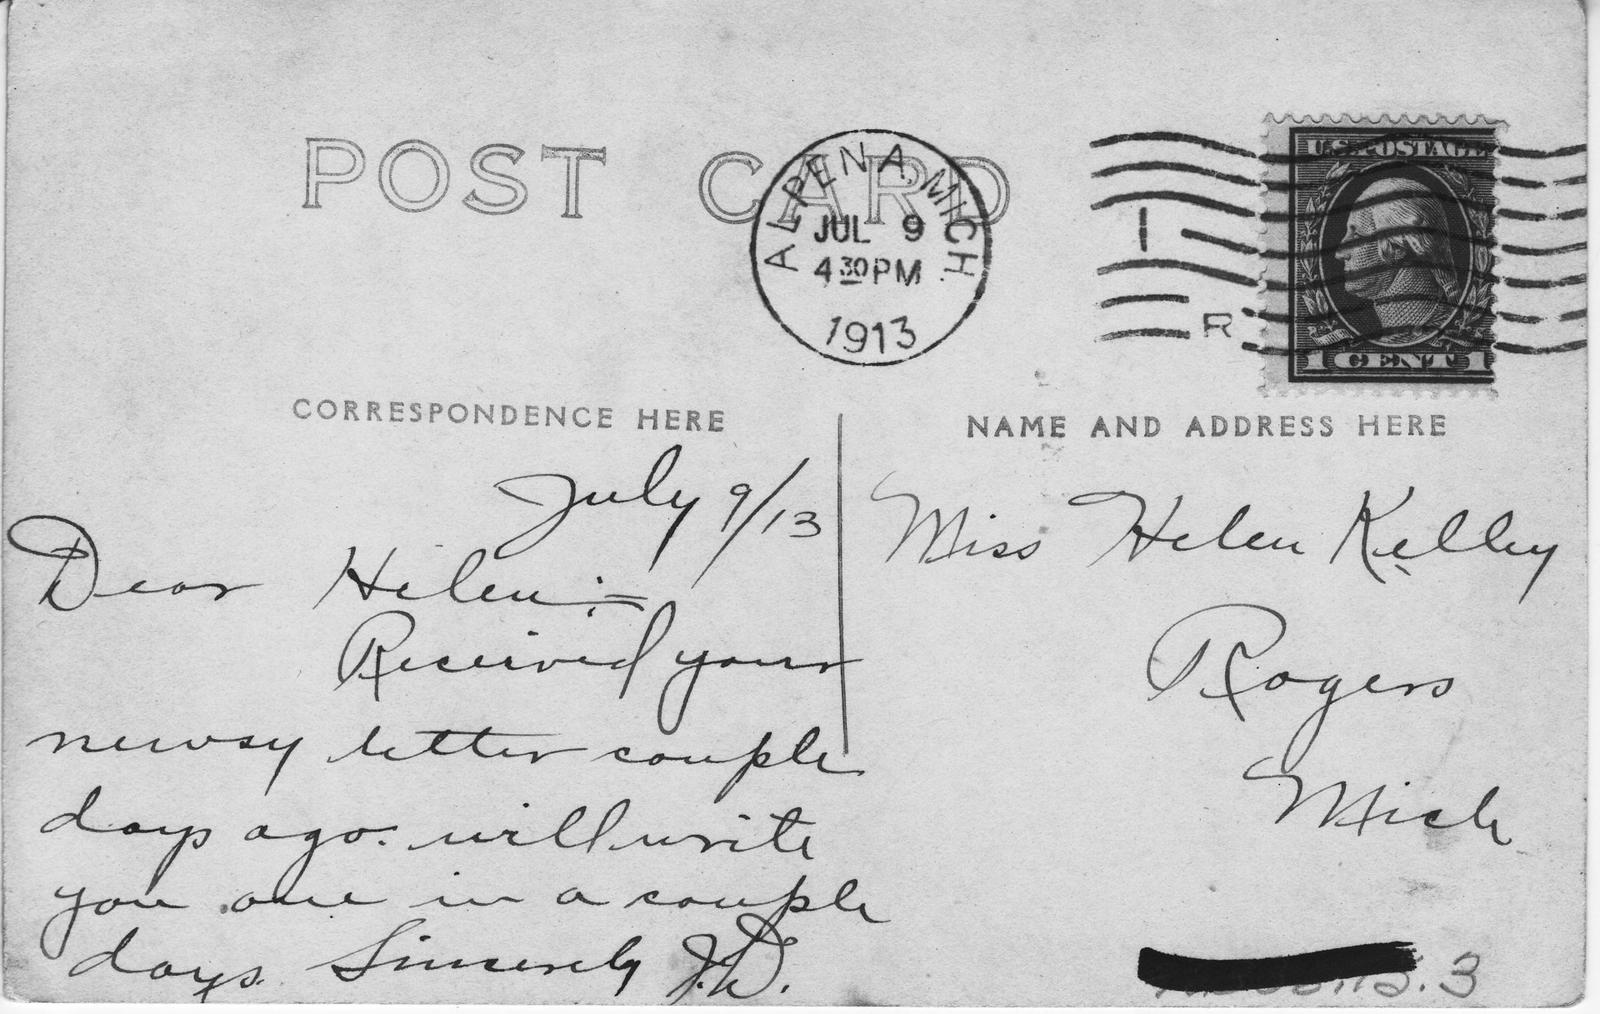 POST CARD
ALPENA, MICH.
JUL 9
4 30 PM
1913
1
R
U.S. POSTAGE
1 CENT 1
CORRESPONDENCE HERE
NAME AND ADDRESS HERE
July 9/13
Dear Helen:=
Received your
newsy letter couple
days ago. will write
you one in a couple
days. Sincerely J.D.
Miss Helen Kelley
Rogers
Mich
.3